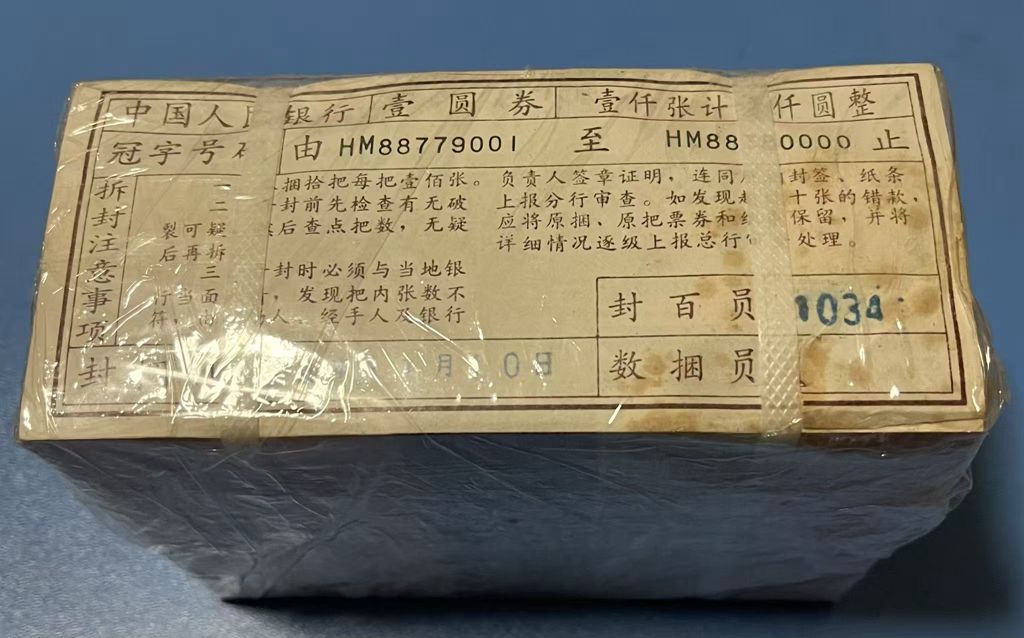 中国人民银行 壹圆券 壹仟张计 仟圆整
冠字号 由 HM88779001 至 HM88 0000 止
拆封注意事项
捆拾把每把壹佰张。
二 封前先检查有无破
裂可疑 后查点把数，无疑
后再拆
三 封时必须与当地银
行当面 ，发现把内张数不
符， 人、经手人及银行
负责人签章证明，连同 封签、纸条
上报分行审查。如发现 十张的错款，
应将原捆、原把票券和 保留，并将
详细情况逐级上报总行 处理。
封百员 1034
封 月 0日
数捆员